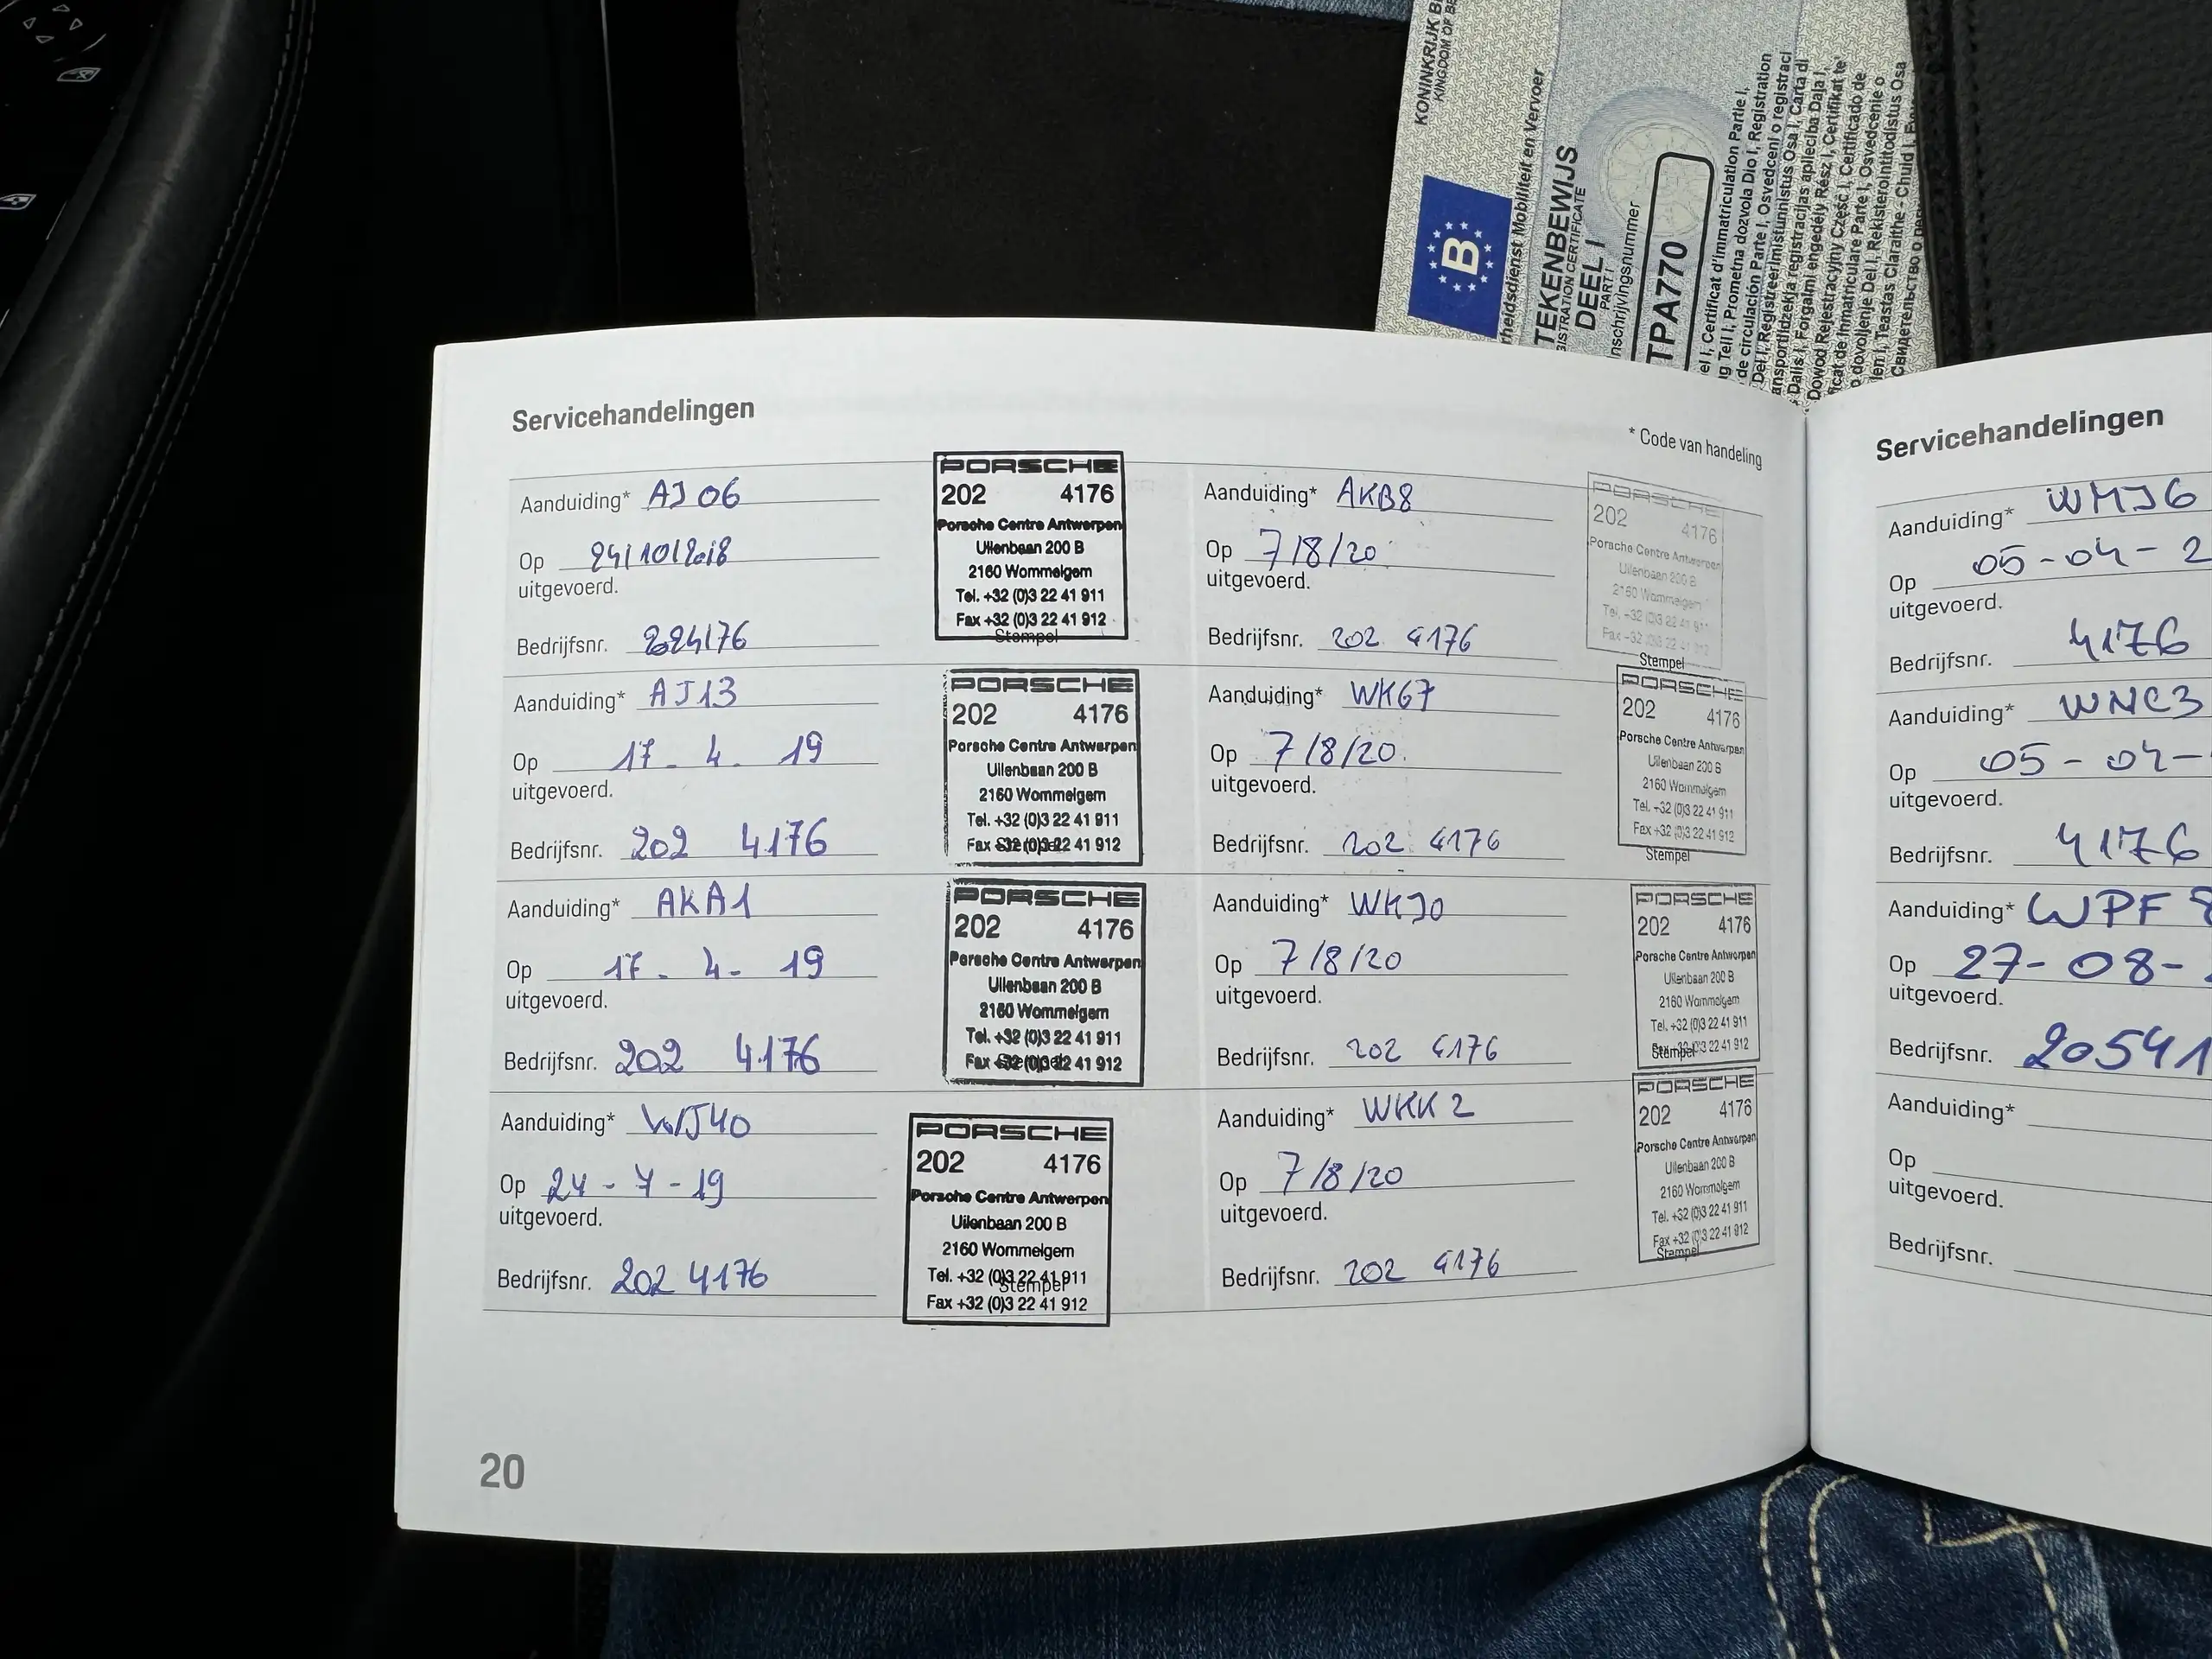 KONINKRIJK B
KINGDOM OF BE
rheidsdienst Mobiliteit en Vervoer
B
TEKENBEWIJS
GISTRATION CERTIFICATE
DEEL I
PART I
nschrijvingsnummer
TPA770
el I, Certificat d'immatriculation Partie I,
g Teil I, Prometna dozvola Dio I, Registration
de circulación Parte I, Osvedceni o registraci
Del I, Registreerimistunnistus Osa I, Carta di
ansportlidzekja registracijas aplieciba Daja I,
Dalis I, Forgalmi engedély Rész I, Certifikat te
Dowod Rejestracyjny Część I, Certificado de
ficat de inmatriculare Parte I, Osvedcenie o
o dovoljenje Del I, Rekisteröintitodistus Osa
len I, Teastas Claraithe - Chuid I,
Servicehandelingen
* Code van handeling
Aanduiding* AJ06
Op 24/10/2018
uitgevoerd.
Bedrijfsnr. 2024176
PORSCHE
202 4176
Porsche Centre Antwerpen
Uilenbaan 200 B
2160 Wommelgem
Tel. +32 (0)3 22 41 911
Fax +32 (0)3 22 41 912
Stempel
Aanduiding* AJ13
Op 17 - 4 - 19
uitgevoerd.
Bedrijfsnr. 202 4176
PORSCHE
202 4176
Porsche Centre Antwerpen
Uilenbaan 200 B
2160 Wommelgem
Tel. +32 (0)3 22 41 911
Fax +32 (0)3 22 41 912
Stempel
Aanduiding* AKA1
Op 17 - 4 - 19
uitgevoerd.
Bedrijfsnr. 202 4176
PORSCHE
202 4176
Porsche Centre Antwerpen
Uilenbaan 200 B
2160 Wommelgem
Tel. +32 (0)3 22 41 911
Fax +32 (0)3 22 41 912
Stempel
Aanduiding* WJ40
Op 24 - 7 - 19
uitgevoerd.
Bedrijfsnr. 202 4176
PORSCHE
202 4176
Porsche Centre Antwerpen
Uilenbaan 200 B
2160 Wommelgem
Tel. +32 (0)3 22 41 911
Stempel
Fax +32 (0)3 22 41 912
Aanduiding* AKB8
Op 7/8/20
uitgevoerd.
Bedrijfsnr. 202 4176
PORSCHE
202 4176
Porsche Centre Antwerpen
Uilenbaan 200 B
2160 Wommelgem
Tel. +32 (0)3 22 41 911
Fax +32 (0)3 22 41 912
Stempel
Aanduiding* WK67
Op 7/8/20.
uitgevoerd.
Bedrijfsnr. 202 4176
PORSCHE
202 4176
Porsche Centre Antwerpen
Uilenbaan 200 B
2160 Wommelgem
Tel. +32 (0)3 22 41 911
Fax +32 (0)3 22 41 912
Stempel
Aanduiding* WKJ0
Op 7/8/20
uitgevoerd.
Bedrijfsnr. 202 4176
PORSCHE
202 4176
Porsche Centre Antwerpen
Uilenbaan 200 B
2160 Wommelgem
Tel. +32 (0)3 22 41 911
Fax +32 (0)3 22 41 912
Stempel
Aanduiding* WKK2
Op 7/8/20
uitgevoerd.
Bedrijfsnr. 202 4176
PORSCHE
202 4176
Porsche Centre Antwerpen
Uilenbaan 200 B
2160 Wommelgem
Tel. +32 (0)3 22 41 911
Fax +32 (0)3 22 41 912
Stempel
20
Servicehandelingen
Aanduiding* WMJ6
Op 05-04-2
uitgevoerd.
Bedrijfsnr. 4176
Aanduiding* WNC3
Op 05-04-
uitgevoerd.
Bedrijfsnr. 4176
Aanduiding* WPF8
Op 27-08-
uitgevoerd.
Bedrijfsnr. 20541
Aanduiding*
Op
uitgevoerd.
Bedrijfsnr.